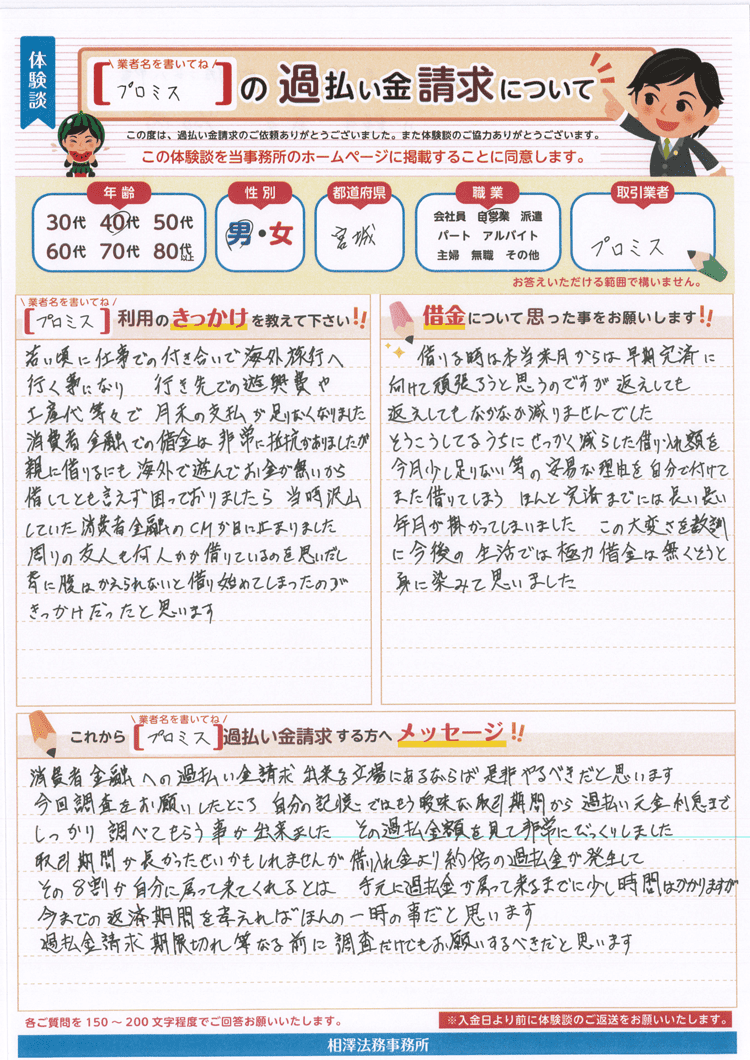 体験談
業者名を書いてね
プロミス
の過払い金請求について
この度は、過払い金請求のご依頼ありがとうございました。また体験談のご協力ありがとうございます。
この体験談を当事務所のホームページに掲載することに同意します。
年齢
30代 40代 50代
60代 70代 80代以上
性別
男・女
都道府県
宮城
職業
会社員 自営業 派遣
パート アルバイト
主婦 無職 その他
取引業者
プロミス
お答えいただける範囲で構いません。
業者名を書いてね
プロミス 利用のきっかけを教えて下さい!!
若い頃に仕事での付き合いで海外旅行へ
行く事になり 行き先での遊興費や
土産代等々で 月末の支払が足りなくなりました
消費者金融での借金は非常に抵抗がありましたが
親に借りるにも海外で遊んでお金が無いから
借してとも言えず困っておりましたら 当時沢山
していた消費者金融のCMが目に止まりました
周りの友人も何人かが借りているのを思いだし
背に腹はかえられないと借り始めてしまったのが
きっかけだったと思います
借金について思った事をお願いします!!
借りる時は本当来月からは早期完済に
向けて頑張ろうと思うのですが返えしても
返えしてもなかなか減りませんでした
そうこうしてるうちにせっかく減らした借り入れ額を
今月少し足りない等の安易な理由を自分で付けて
また借りてしまう ほんと完済までには長い長い
年月が掛かってしまいました この大変さを教訓
に今後の生活では極力借金は無くそうと
身に染みて思いました
業者名を書いてね
これから プロミス 過払い金請求する方へ メッセージ!!
消費者金融への過払い金請求出来る立場にあるならば是非やるべきだと思います
今回調査をお願いしたところ 自分の記憶ではもう曖昧な取引期間から過払い元金利息まで
しっかり調べてもらう事が出来ました その過払金額を見て非常にびっくりしました
取引期間が長かったせいかもしれませんが借り入れ金より約倍の過払金が発生して
その8割が自分に戻って来てくれるとは 手元に過払金が戻って来るまでに少し時間はかかりますが
今までの返済期間を考えればほんの一時の事だと思います
過払金請求期限切れ等なる前に調査だけでもお願いするべきだと思います
各ご質問を150～200文字程度でご回答お願いいたします。
※入金日より前に体験談のご返送をお願いいたします。
相澤法務事務所